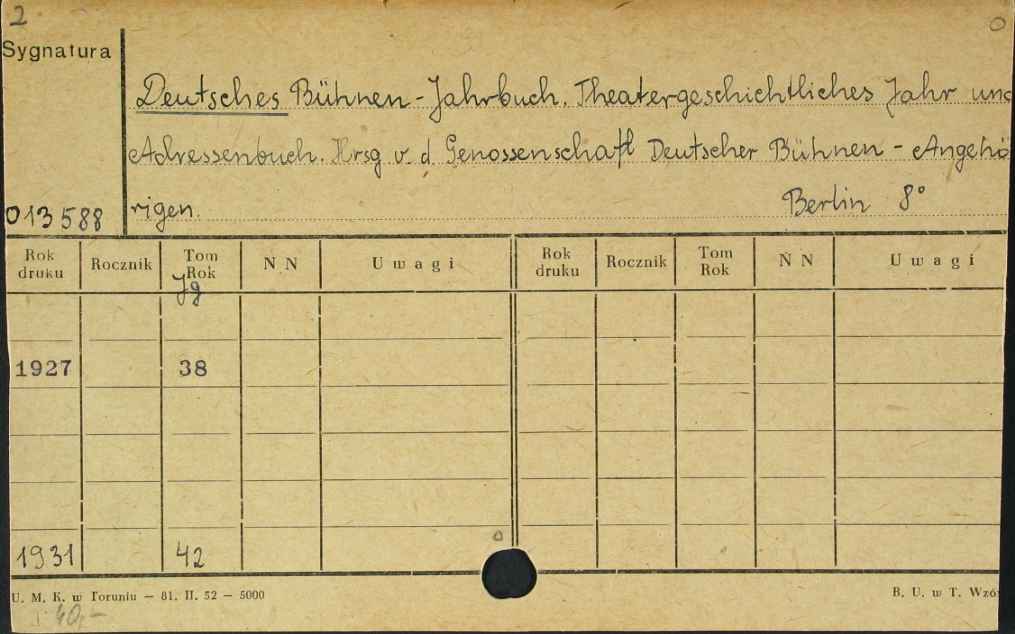 2
0
Sygnatura
Deutsches Bühnen-Jahrbuch. Theatergeschichtliches Jahr und
Adressenbuch. Hrsg v. d. Genossenschaft Deutscher Bühnen-Angehö
013588 rigen. Berlin 8°
Rok druku Rocznik Tom Rok N N Uwagi Rok druku Rocznik Tom Rok N N Uwagi
Jg
1927 38
1931 42
U. M. K. w Toruniu — 81. II. 52 — 5000 B. U. w T. Wzó
40,-